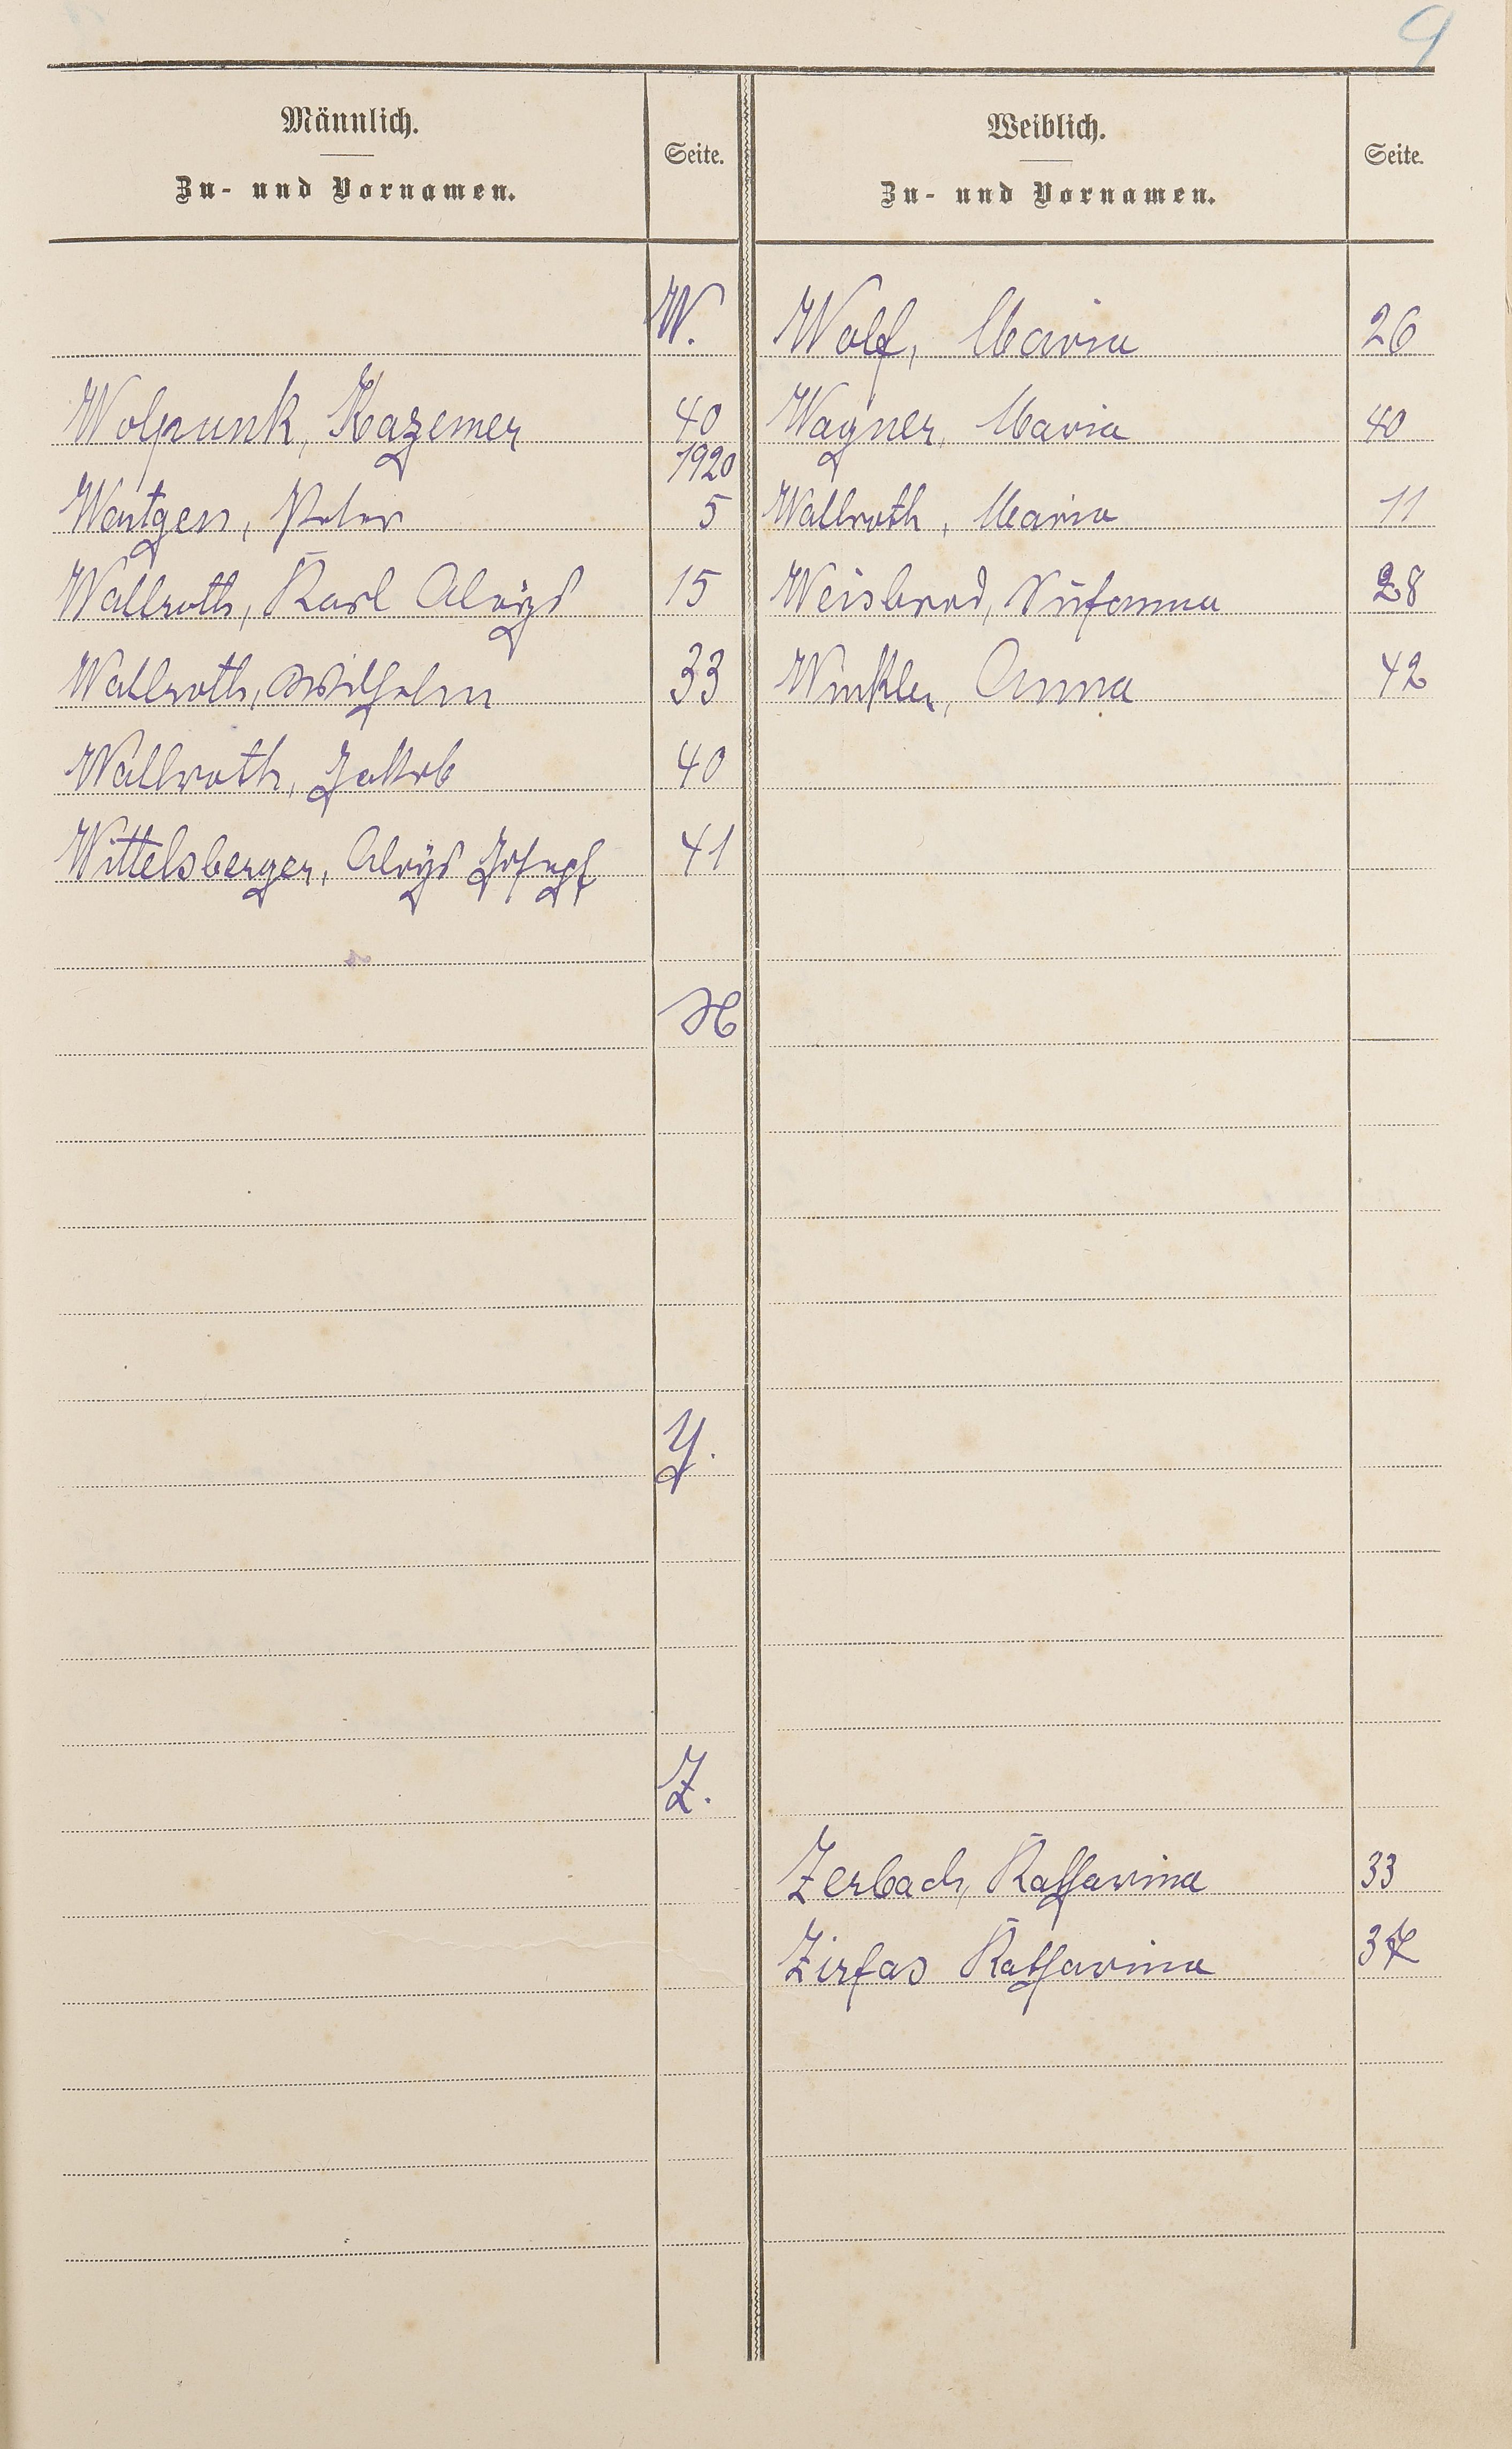 9
Männlich.
Zu- und Vornamen.
Seite.
Weiblich.
Zu- und Vornamen.
Seite.
W.
Wolf, Maria 26
Wolpunk, Kazemer 40
Wagner, Maria 40
1920
Wantgen, Peter 5
Wallroth, Maria 11
Wallroth, Karl Aloÿs 15
Weisbrod, Susanna 28
Wallroth, Wilhelm 33
Winkler, Anna 42
Wallroth, Jakob 40
Wittelsberger, Aloÿs Josepf 41
X
Y.
Z.
Zerbach, Katharina 33
Zirfas Katharina 37